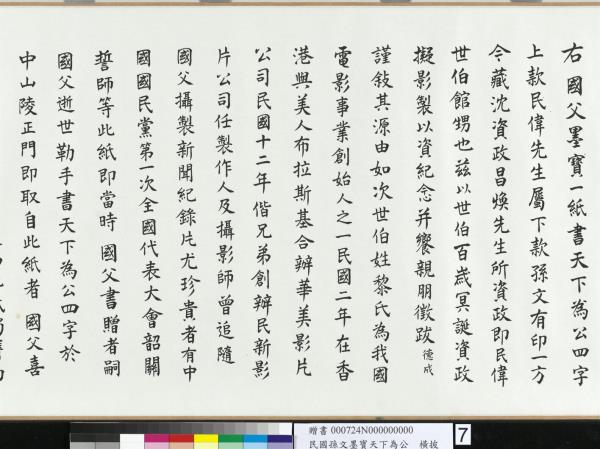 右 國父墨寶一紙書天下為公四字
上款民偉先生屬下款孫文有印一方
今藏沈資政昌煥先生所資政即民偉
世伯館甥也兹以世伯百歲冥誕資政
擬影製以資紀念并饗親朋徵跋德成
謹敍其源由如次世伯姓黎氏為我國
電影事業創始人之一民國二年在香
港與美人布拉斯基合辦華美影片
公司民國十二年偕兄弟創辦民新影
片公司任製作人及攝影師曾追隨
國父攝製新聞紀錄片尤珍貴者有中
國國民黨第一次全國代表大會韶關
誓師等此紙即當時 國父書贈者嗣
國父逝世勒手書天下為公四字於
中山陵正門即取自此紙者 國父喜
贈書 000724N000000000
民國孫文墨寶天下為公 橫披
7